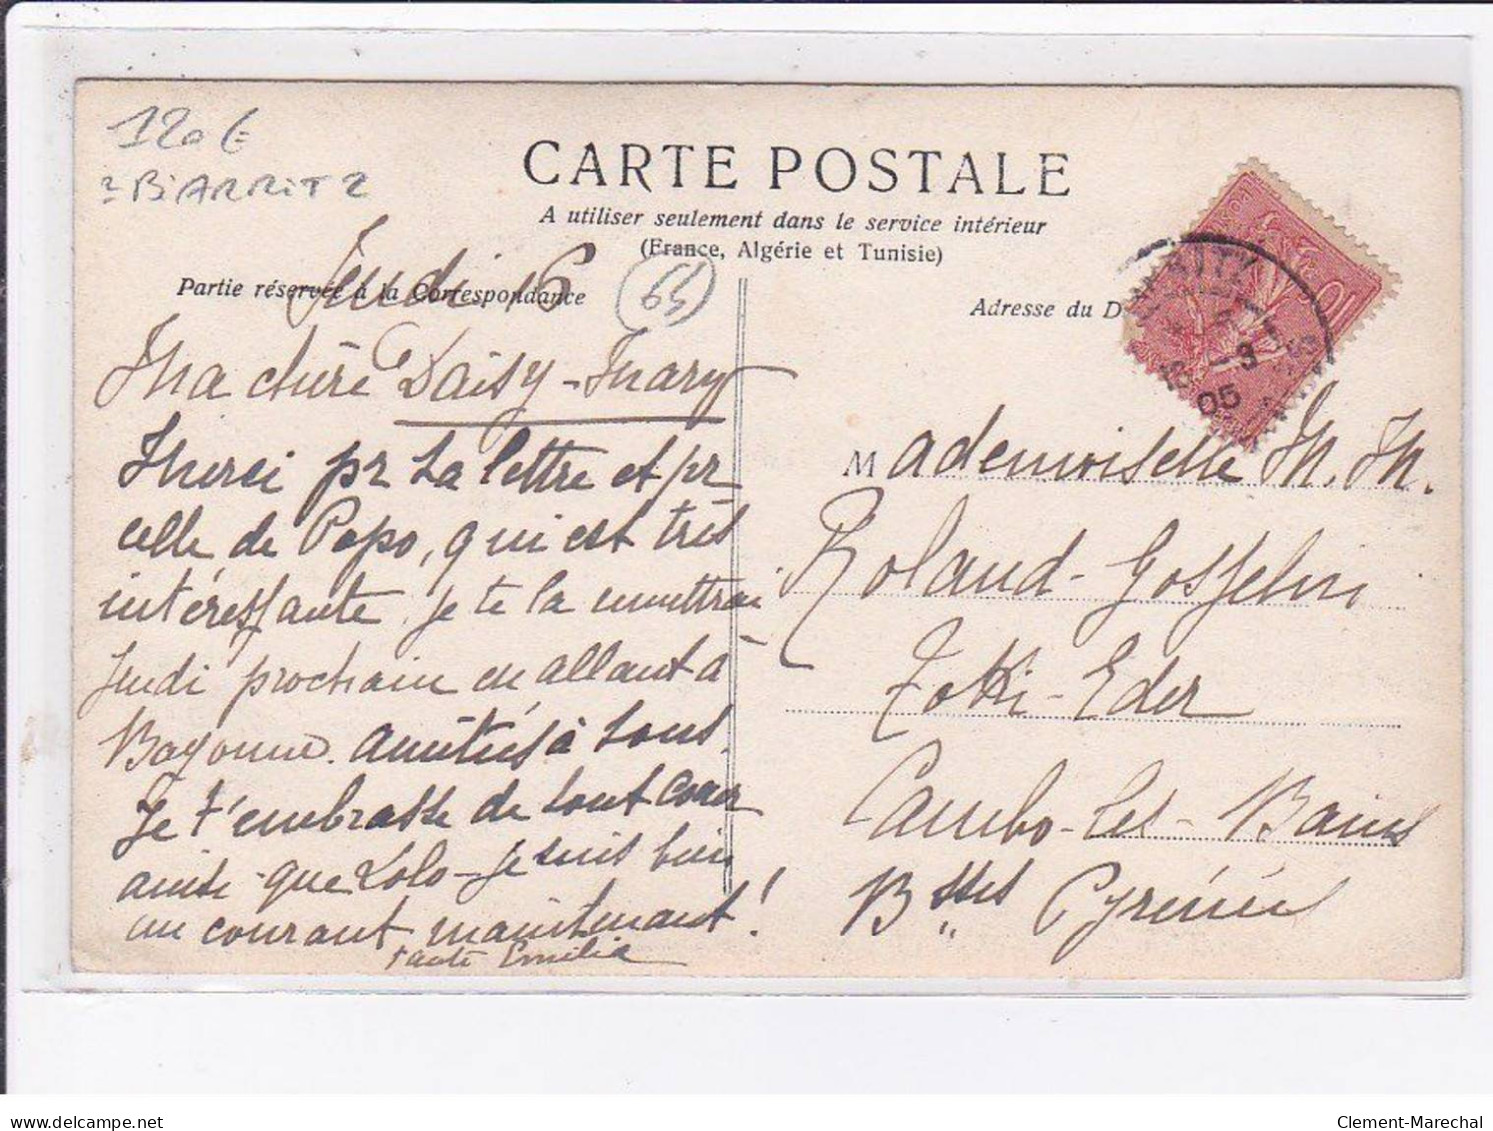 120 €
? BiARRiTZ
CARTE POSTALE
A utiliser seulement dans le service intérieur
(France, Algérie et Tunisie)
Partie réservée à la Correspondance
Adresse du D
64
Jeudi 16
Ma chère Daisy-Mary
Merci pr ta lettre et pr
celle de Popo, qui est très
intéressante je te la remettrai
Jeudi prochain en allant à
Bayonne. Amitiés à tous.
Je t'embrasse de tout coeur
ainsi que Lolo - je suis bien
au courant maintenant!
tante Emilia
Mademoiselle M. M.
Roland-Gosselin
Toki-Eder
Cambo-les-Bains
Bsses Pyrénées
10
05
delcampe.net
Clement-Marechal